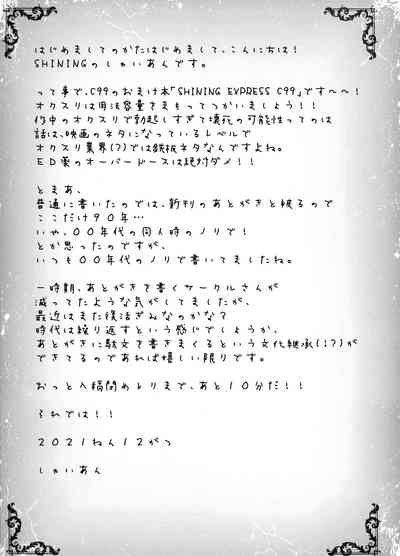 はじめましてのかたはじめまして、こんにちは！
SHININGのしゃいあんです。
って事で、C99のおまけ本「SHINING EXPRESS C99」です～～！
オクスリは用法容量をまもってつかいましょう！！
作中のオクスリで勃起しすぎて壊死の可能性ってのは
話は、映画のネタになっているレベルで
オクスリ業界（？）では鉄板ネタなんですよね。
ED薬のオーバードースは絶対ダメ！！
とまあ、
普通に書いたのでは、新刊のあとがきと被るので
ここだけ９０年…
いや、００年代の同人時のノリで！
とか思ったのですが、
いつも００年代のノリで書いてましたね。
一時期、あとがきを書くサークルさんが
減ってたような気がしてましたが、
最近はまた復活ぎみなのかな？
時代は繰り返すという感じでしょうか、
あとがきに駄文を書きまくるという文化継承（！？）が
できてるのであれば嬉しい限りです。
おっと入稿閉めきりまで、あと１０分だ！！
それでは！！
２０２１ねん１２がつ
しゃいあん